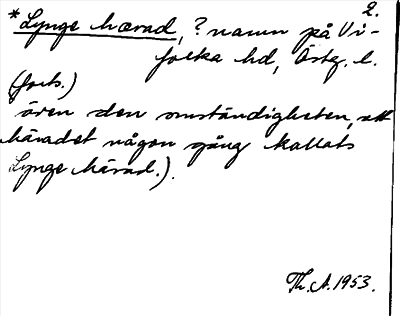 2.
*Lynge hærad, ? namn på Vi-
folka hd, Östg. l.
(forts.)
även den omständigheten, att
häradet någon gång kallats
Lynge härad.).
Th. A. 1953.